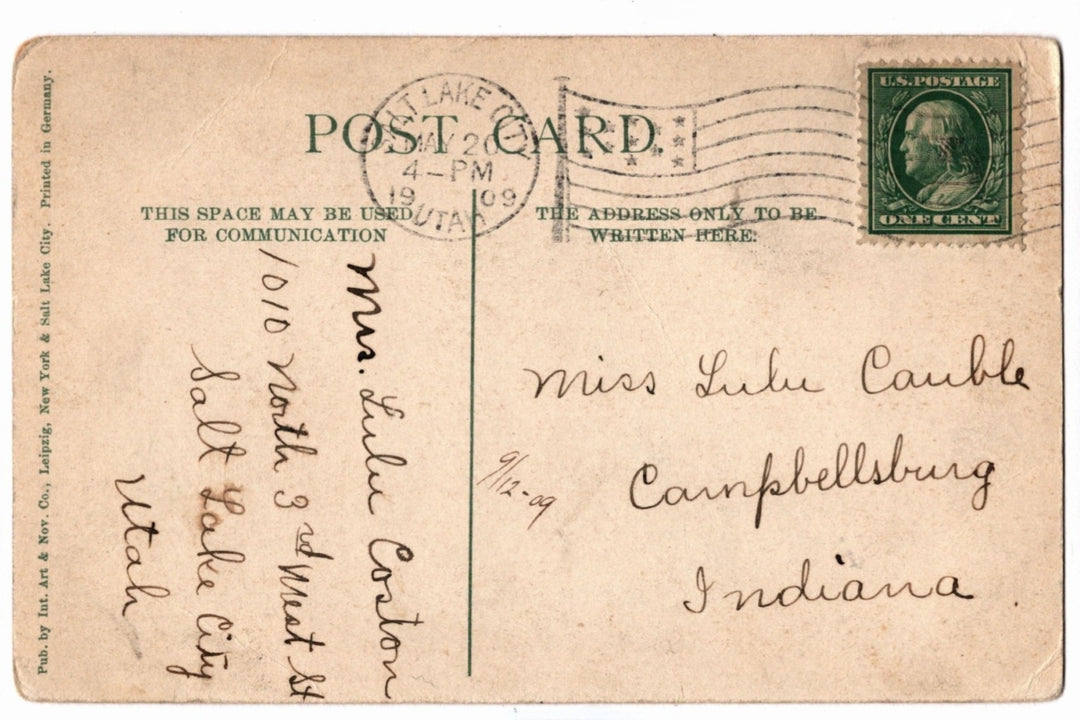 Pub. by Int. Art & Nov. Co., Leipzig, New York & Salt Lake City. Printed in Germany.
POST CARD.
SALT LAKE CITY
MAY 20
4-PM
1909
UTAH
U.S. POSTAGE
ONE CENT
THIS SPACE MAY BE USED
FOR COMMUNICATION
THE ADDRESS ONLY TO BE
WRITTEN HERE.
Mrs. Lulu Coston
1010 North 3rd West St
Salt Lake City
Utah
9/12-09
Miss Lulu Cauble
Campbellsburg
Indiana.